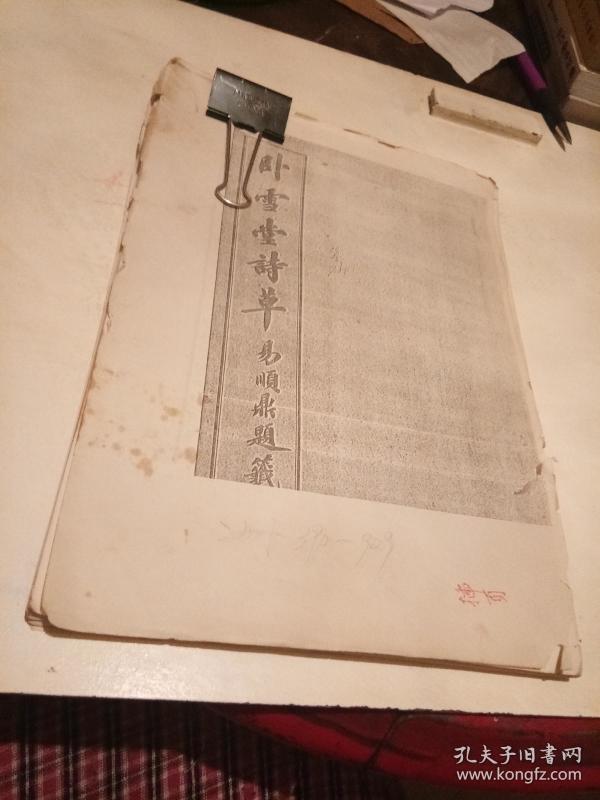 卧雪堂詩草
易順鼎題籤
孔夫子旧书网
www.kongfz.com